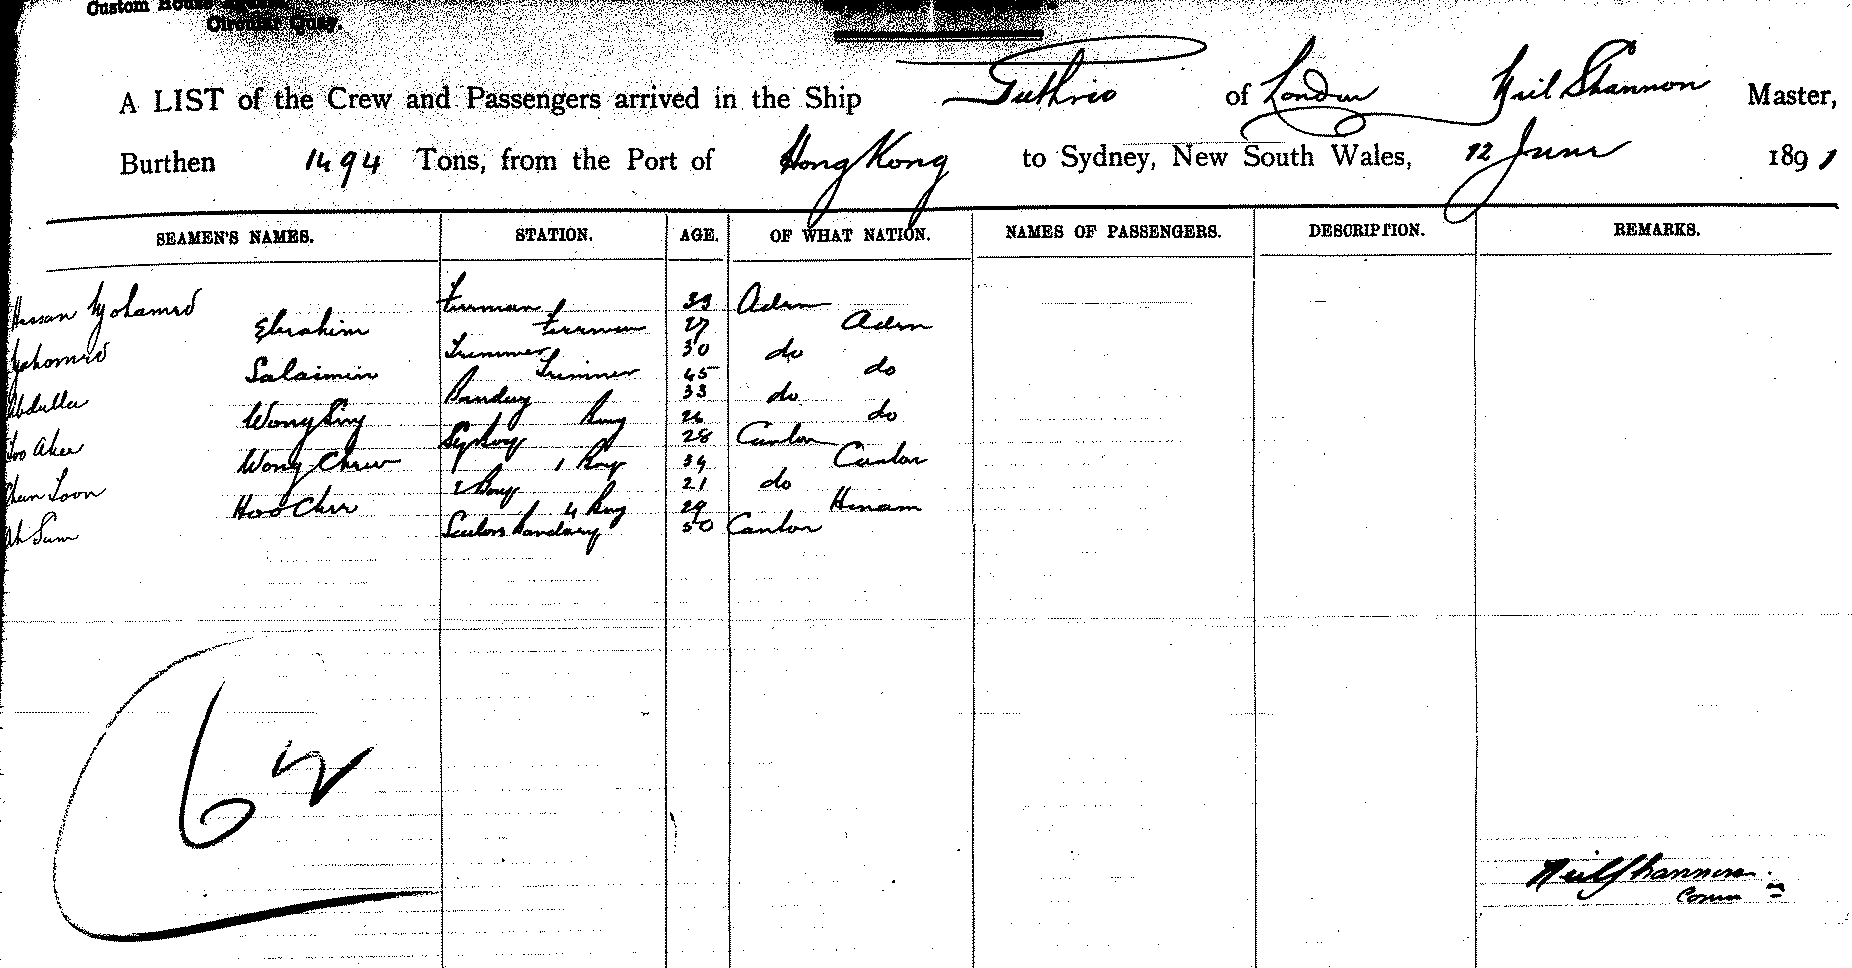 Custom House
Circular Quay.
A LIST of the Crew and Passengers arrived in the Ship Guthrie of London Neil Shannon Master,
Burthen 1494 Tons, from the Port of Hong Kong to Sydney, New South Wales, 12 June 1891
SEAMEN'S NAMES. STATION. AGE. OF WHAT NATION. NAMES OF PASSENGERS. DESCRIPTION. REMARKS.
Hassan Mohamed Fireman 33 Aden
Ebrahim Fireman 27 Aden
Mahomed Trimmer 30 do
Salaimin Trimmer 45 do
Abdulla 33 do
Wong Sing Boy 26 do
Loo Akee 28 Canton
Wong Chew 1 Boy 34 Canton
Chun Loon 2 Boy 21 do
Hoo Chee 4 Boy 29 Hinam
Ah Sum Sailors Bandary 50 Canton
Neil Shannon
Comm